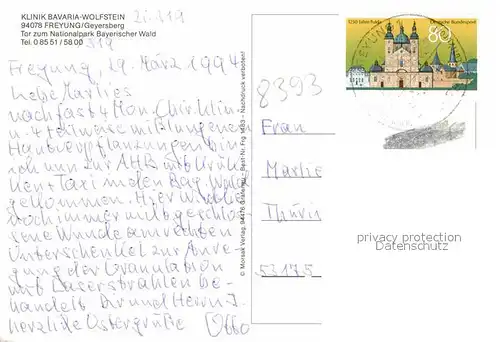 KLINIK BAVARIA-WOLFSTEIN
94078 FREYUNG/Geyersberg
Tor zum Nationalpark Bayerischer Wald
Tel. 0 85 51 / 58 00
519
Freyung, 29. März 1994
Liebe Marlies
nach fast 4 Mon. Chir. Klin
u. 4 teilweise mißlungenen
Hautverpflanzungen bin
ich nun zur AHB mit Krük-
ken + Taxi in den Bay. Wald
gekommen. Hier wird die
noch immer nicht geschlos-
sene Wunde am rechten
Unterschenkel zur Anre-
gung der Granulation
mit Laserstrahlen be-
handelt. Dir und Herrn J.
herzliche Ostergrüße Otto
© Morsak Verlag, 94476 Grafenau - Best-Nr. Frg 1483 - Nachdruck verboten!
8393
Frau
Marlie
Thüri
53175
1250 Jahre Fulda
Deutsche Bundespost
80
FREYUNG
privacy protection
Datenschutz